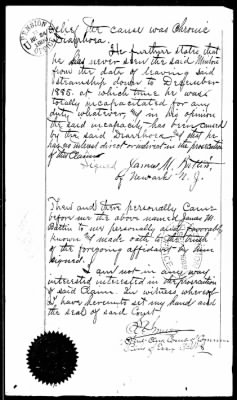 belief the cause was Chronic
Diarrhora.
He further states that
he has never seen the said Minton
from the date of leaving said
steamship down to December
1885. at which time he was
totally incapacitated for any
duty whatever, & in his opinion
the said incapacity has been caused
by the said Diarrhora. & that he
has no interest direct or indirect in the prosecution
of this Claim
Signed James M. Battin,
of Newark N. J.
Then and there personally Came
before me the above named James M.
Battin to me personally and favorably
known & made oath to the truth
of the forgoing affidavit by him
signed.
I am not in any way
interested interested in the prosecution
of said Claim. In witness, whereof
I have hereunto set my hand and
the seal of said Court
PENSION